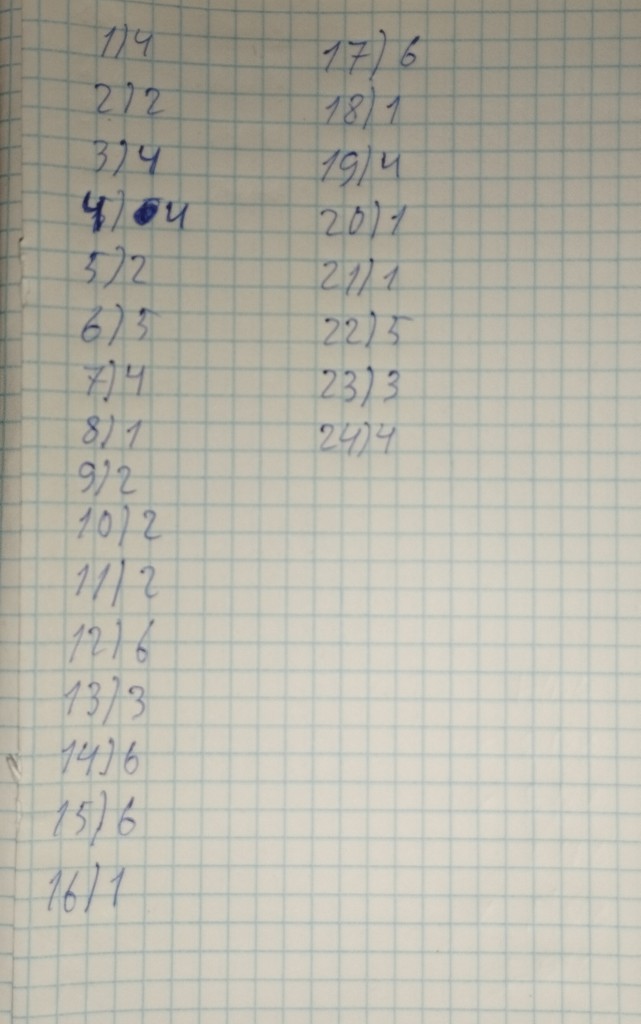 1)4
2)2
3)4
4)4
5)2
6)5
7)4
8)1
9)2
10)2
11)2
12)6
13)3
14)6
15)6
16)1
17)6
18)1
19)4
20)1
21)1
22)5
23)3
24)4